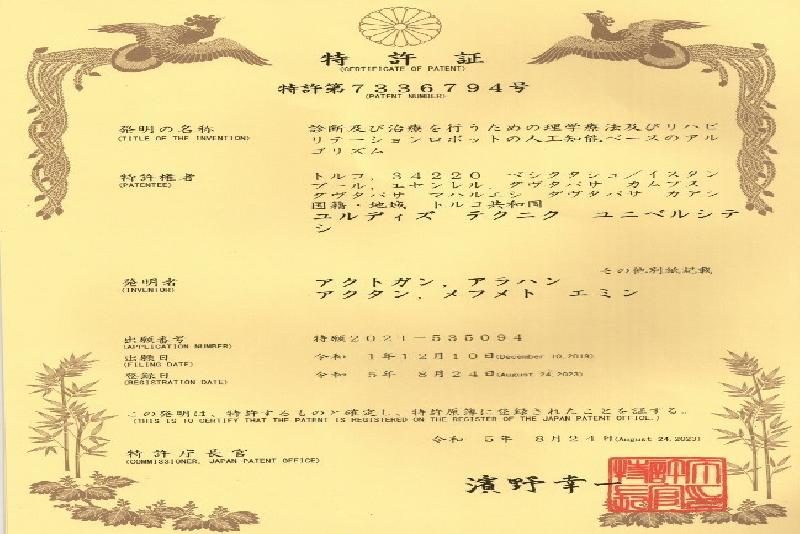 特許証
(CERTIFICATE OF PATENT)
特許第7336794号
(PATENT NUMBER)
発明の名称
(TITLE OF THE INVENTION)
診断及び治療を行うための理学療法及びリハビ
リテーションロボットの人工知能ベースのアル
ゴリズム
特許権者
(PATENTEE)
トルコ、34220 ベシクタシュ/イスタン
ブール、エセンレル、ダヴタパサ カムプス
ダヴタパサ マハルエシ ダヴタパサ カデシ
国籍・地域 トルコ共和国
ユルディズ テクニク ユニベルシテ
シ
その他別紙記載
発明者
(INVENTOR)
アクドガン、アラハン
アクタン、メフメト エミン
出願番号
(APPLICATION NUMBER)
特願2021-535094
出願日
(FILING DATE)
令和 1年12月10日(December 10,2019)
登録日
(REGISTRATION DATE)
令和 5年 8月24日(August 24,2023)
この発明は、特許するものと確定し、特許原簿に登録されたことを証する。
(THIS IS TO CERTIFY THAT THE PATENT IS REGISTERED ON THE REGISTER OF THE JAPAN PATENT OFFICE.)
令和 5年 8月24日(August 24,2023)
特許庁長官
(COMMISSIONER, JAPAN PATENT OFFICE)
濱野幸一